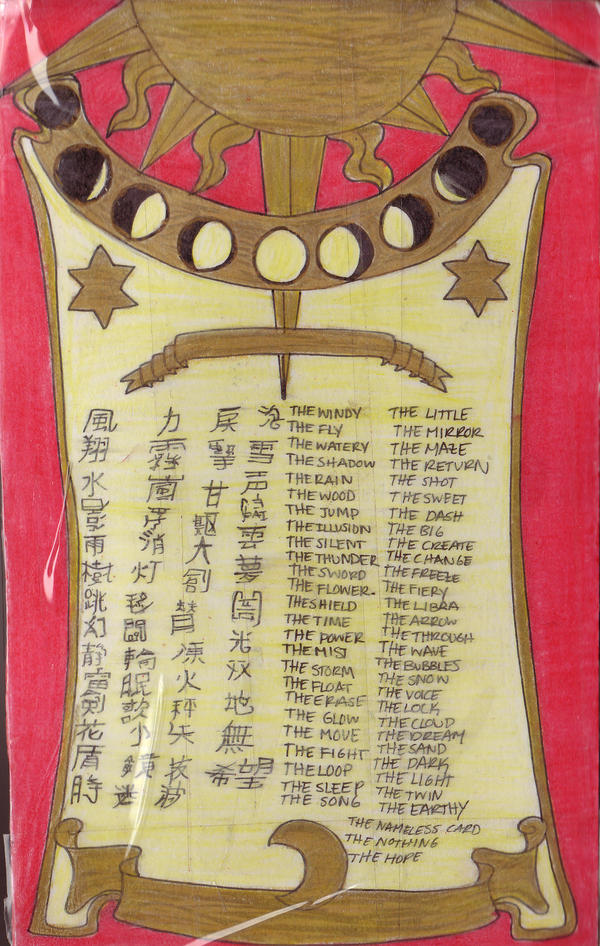 風翔水影雨樹跳幻静雷剣花盾時
力霧嵐浮消灯移闘輪眠歌小鏡迷
戻撃甘駆大創凍火秤矢抜波
泡雪声雲夢闇光双地無希望
THE WINDY
THE FLY
THE WATERY
THE SHADOW
THE RAIN
THE WOOD
THE JUMP
THE ILLUSION
THE SILENT
THE THUNDER
THE SWORD
THE FLOWER.
THE SHIELD
THE TIME
THE POWER
THE MIST
THE STORM
THE FLOAT
THE ERASE
THE GLOW
THE MOVE
THE FIGHT
THE LOOP
THE SLEEP
THE SONG
THE LITTLE
THE MIRROR
THE MAZE
THE RETURN
THE SHOT
THE SWEET
THE DASH
THE BIG
THE CREATE
THE CHANGE
THE FREEZE
THE FIERY
THE LIBRA
THE ARROW
THE THROUGH
THE WAVE
THE BUBBLES
THE SNOW
THE VOICE
THE LOCK
THE CLOUD
THE DREAM
THE SAND
THE DARK
THE LIGHT
THE TWIN
THE EARTHY
THE NAMELESS CARD
THE NOTHING
THE HOPE